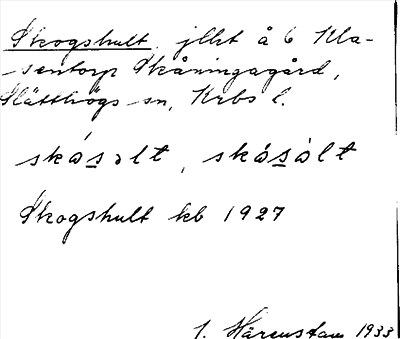 Skogshult, jlht å 6 Kla-
sentorp Skåningagård,
Slätthögs sn, Krbs l.
skósəlt, skósòlt
Skogshult kb 1927
1. Hårenstam 1933